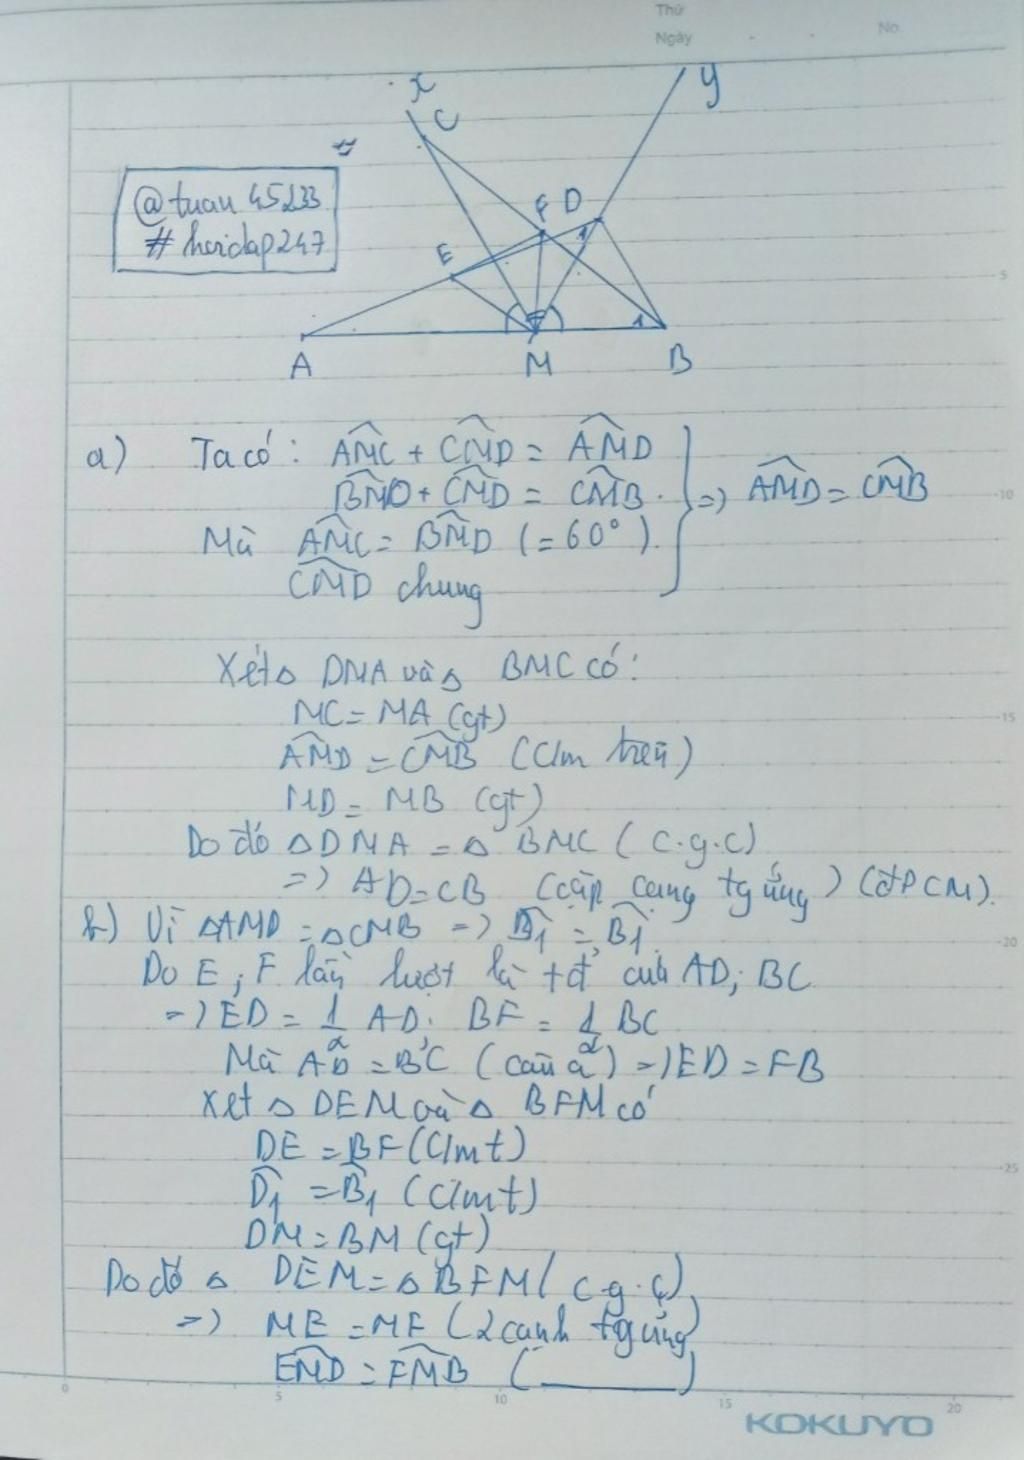 Thứ
Ngày No.
x y
C
@tuan 45233
#hoidap247
F D
E 1
1
A M B
a) Ta có: AMC + CMD = AMD
BMD + CMD = CMB. => AMD = CMB
Mà AMC = BMD (=60°).
CMD chung
Xét △ DMA và △ BMC có:
MC = MA (gt)
AMD = CMB (C/m trên)
MD = MB (gt)
Do đó △DMA = △ BMC (c.g.c)
=> AD = CB (cặp cạng tg ứng) (đPCM).
b) Vì △AMD = △CMB => D1 = B1
Do E; F lần lượt là tđ của AD; BC
=> ED = 1/2 AD. BF = 1/2 BC
Mà AD = BC (câu a) => ED = FB
Xét △ DEM và △ BFM có
DE = BF (C/mt)
D1 = B1 (C/mt)
DM = BM (gt)
Do đó △ DEM = △ BFM (c.g.c)
=> ME = MF (2 cạnh tg ứng)
EMD = FMB (______)
5
10
15
20
25
0 5 10 15 20
KOKUYO